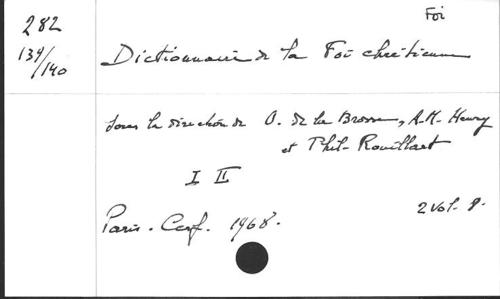 Foi
282
139/140
Dictionnaire de la Foi chrétienne
sous la direction de O. de la Brosse, A.M. Henry
et Phil. Rouillard
I II
Paris. Cerf. 1968.
2 vol. 8.